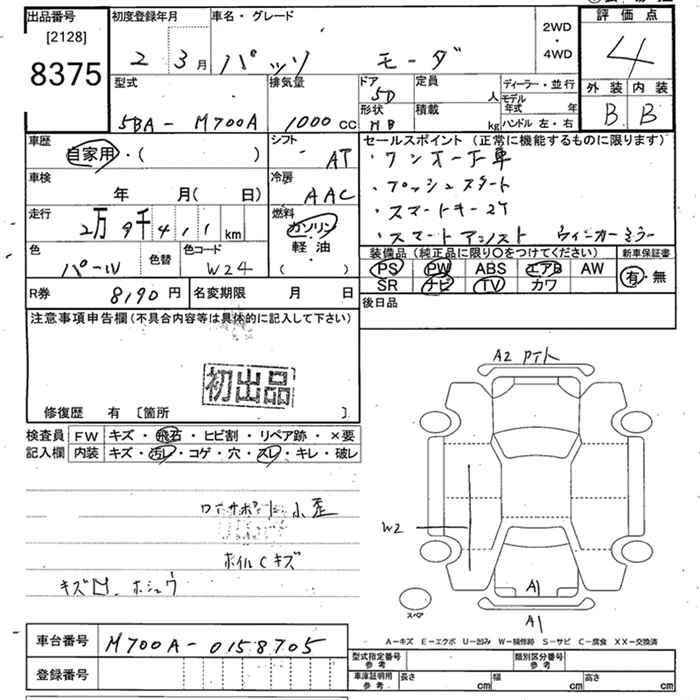 出品番号 初度登録年月 車名・グレード 評価点
[2128] 2 3月 パッソ モーダ 2WD・4WD 4
8375
型式 排気量 ドア 定員 ディーラー・並行 外装 内装
5BA-M700A 1000cc 5D 人 モデル年式 年 B B
形状 積載
HB kg ハンドル 左・右
車歴 シフト セールスポイント(正常に機能するものに限ります)
自家用・( ) AT ・ワンオーナー車
車検 冷房 ・プッシュスタート
年 月(日) AAC ・スマートキー2ケ
走行 燃料 ・スマートアシスト ウィンカーミラー
2万9千4 1 1 km ガソリン
軽油
( )
色 色替 色コード 装備品(純正品に限り○をつけてください) 新車保証書
パール W24 PS PW ABS エアB AW 有・無
SR ナビ TV カワ
R券 8190円 名変期限 月 日 後日品
注意事項申告欄(不具合内容等は具体的に記入して下さい)
初出品
修復歴 有 [箇所 ]
検査員 FW キズ・飛石・ヒビ割・リペア跡・×要
記入欄 内装 キズ・汚レ・コゲ・穴・スレ・キレ・破レ
小歪
ホイルCキズ
キズ
A2
W2
A1
スペア A1
A-キズ E-エクボ U-凹み W-補修跡 S-サビ C-腐食 XX-交換済
車台番号 M700A-0158705
登録番号
型式指定番号 参考 類別区分番号 参考
車庫証明用 参考 長さ cm 幅 cm 高さ cm